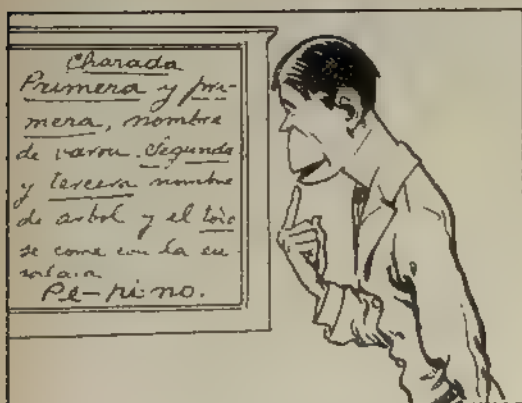 Charada
Primera y pri-
mera, nombre
de varon. Segunda
y tercera nombre
de arbol y el todo
se come con la en-
salada
Pe-pi no.